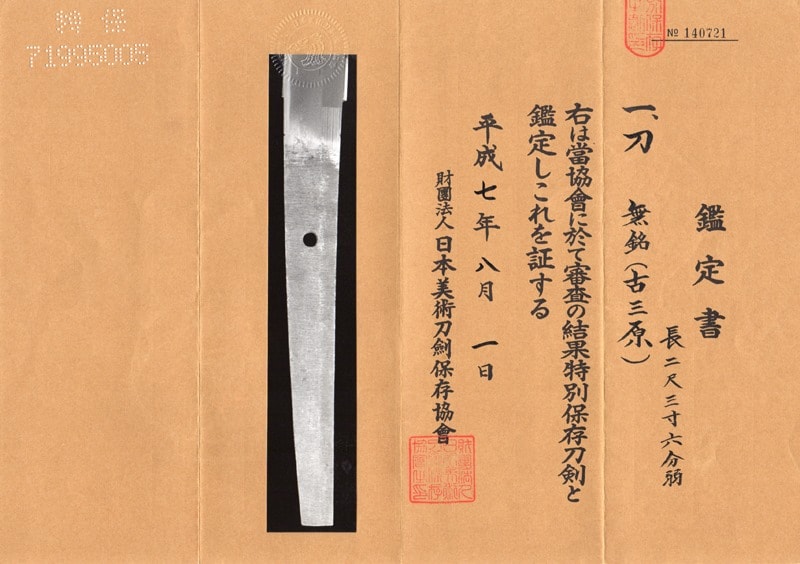 特保
71995005
№ 140721
鑑定書
長二尺三寸六分弱
一、刀 無銘(古三原)
右は當協會に於て審査の結果特別保存刀剣と
鑑定しこれを証する
平成七年八月一日
財團法人日本美術刀劍保存協會